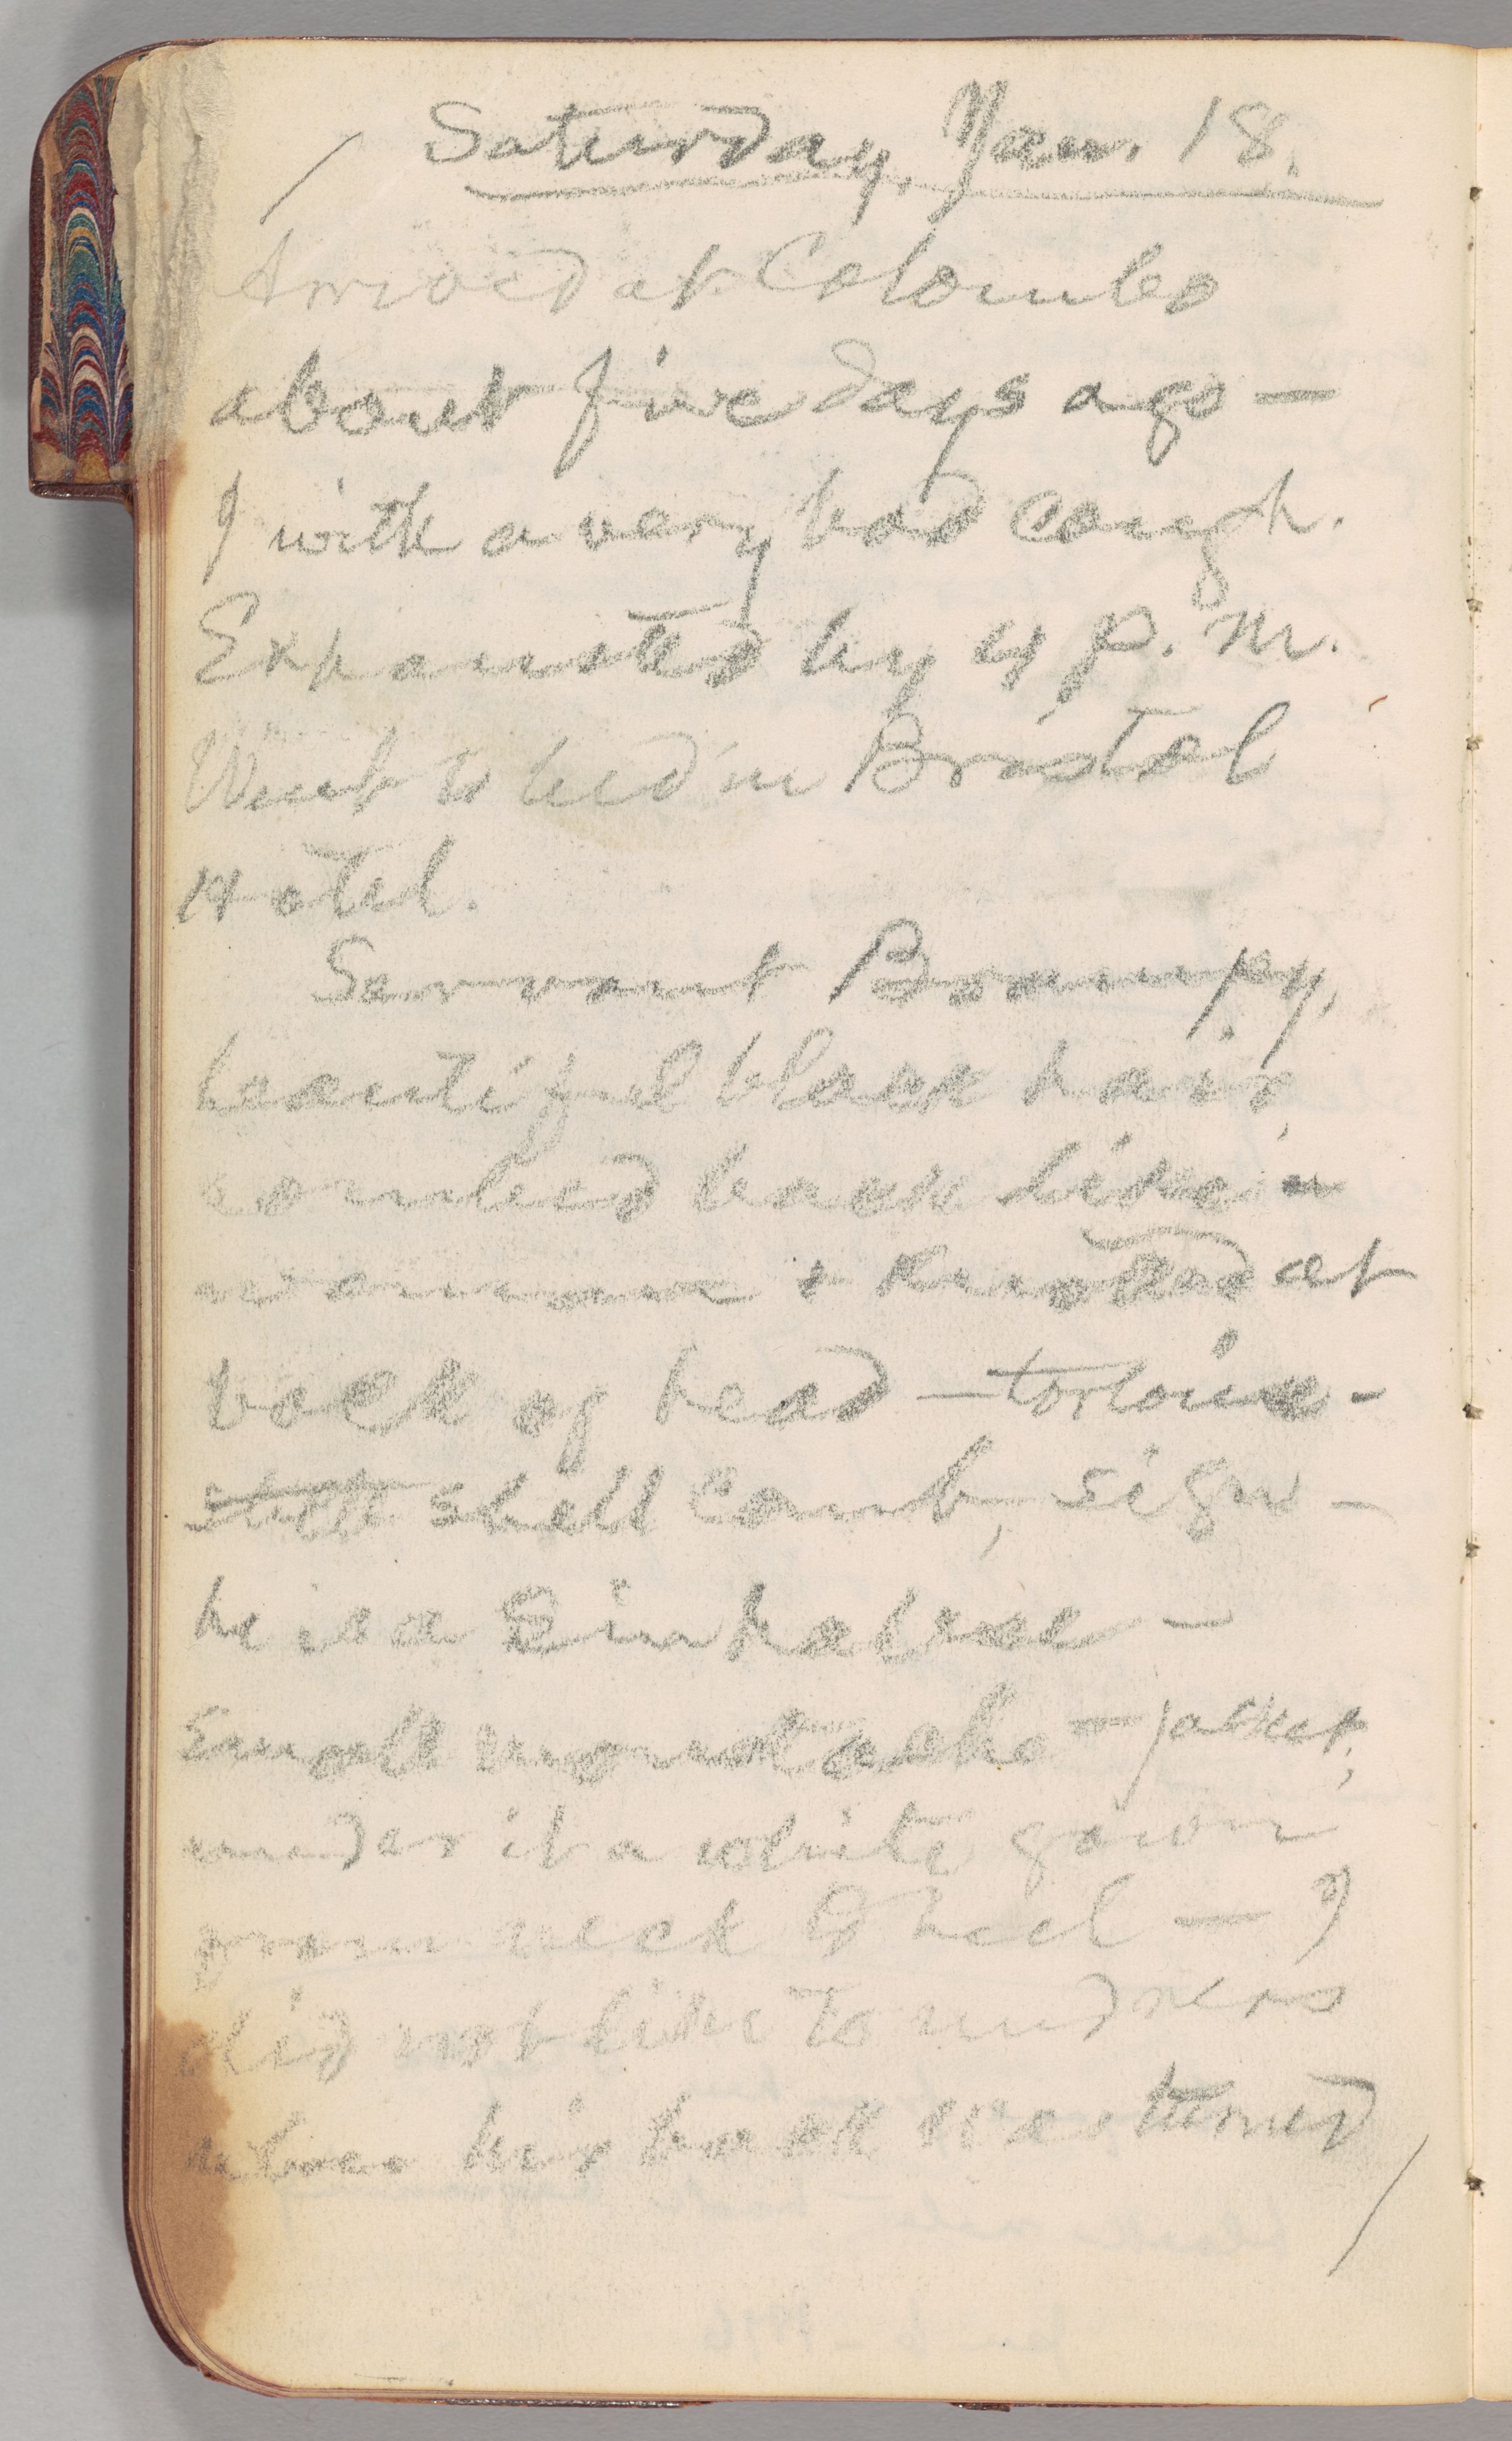 Saturday, Jan. 18.
Arrived at Colombo
about five days ago —
I with a very bad cough.
Exhausted by 4 p. m.
Went to bed in Bristol
Hotel.
Servant Brampy,
beautiful black hair
combed back like a
woman & knotted at
back of head — tortoise-
shell shell comb, sign —
he is a Sinhalese —
small moustache — jacket;
under it a white gown
from neck to heel — I
did not like to undress
unless his back was turned